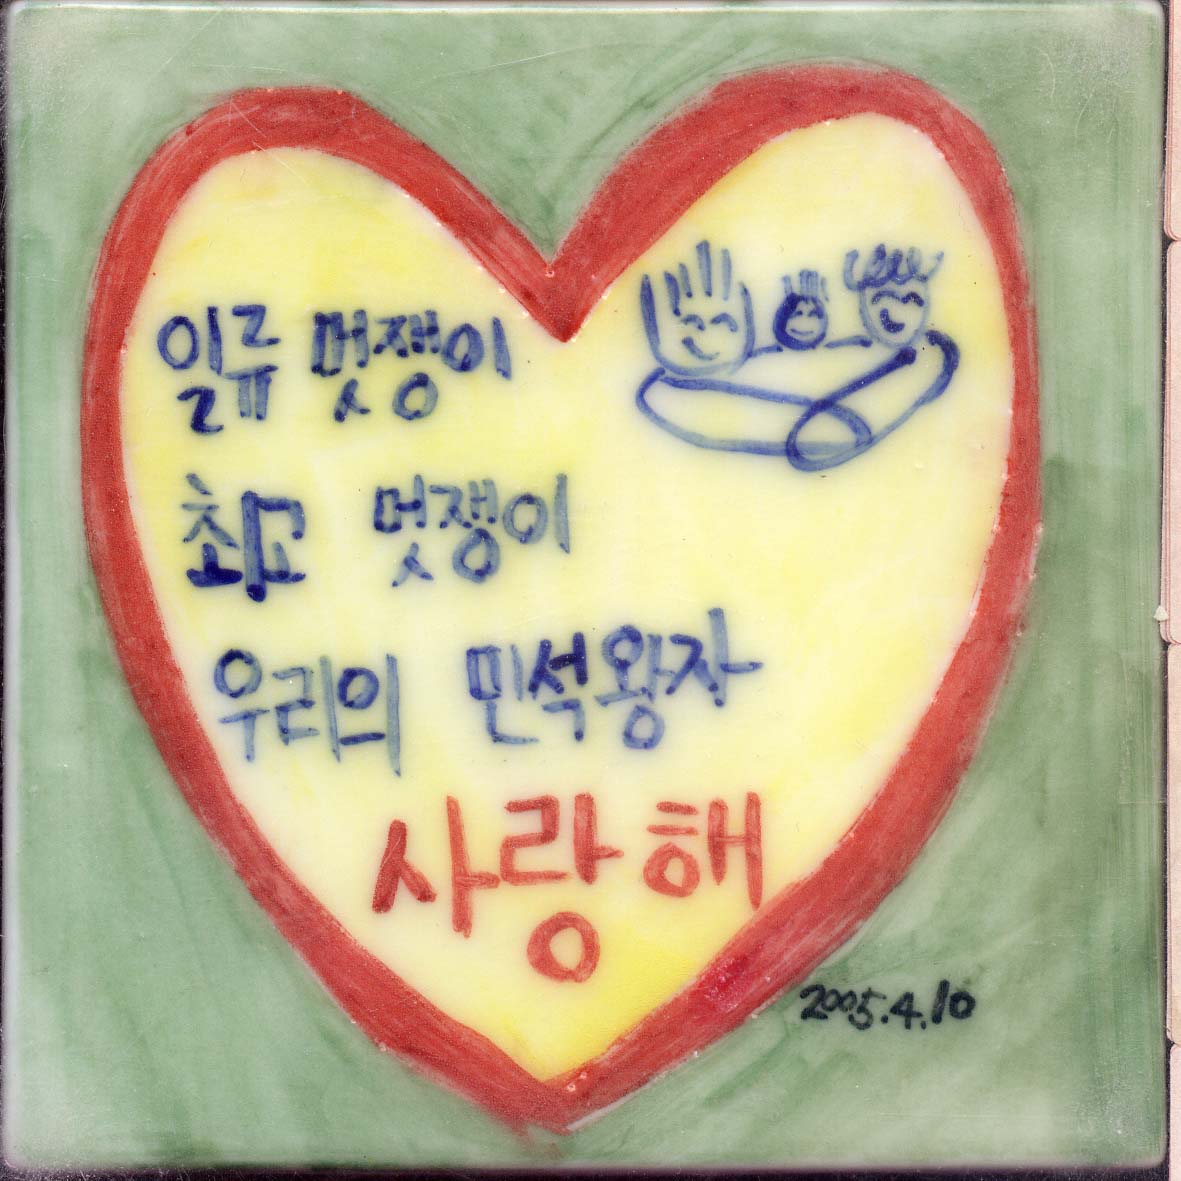 일류 멋쟁이
최고 멋쟁이
우리의 민석왕자
사랑해
2005.4.10